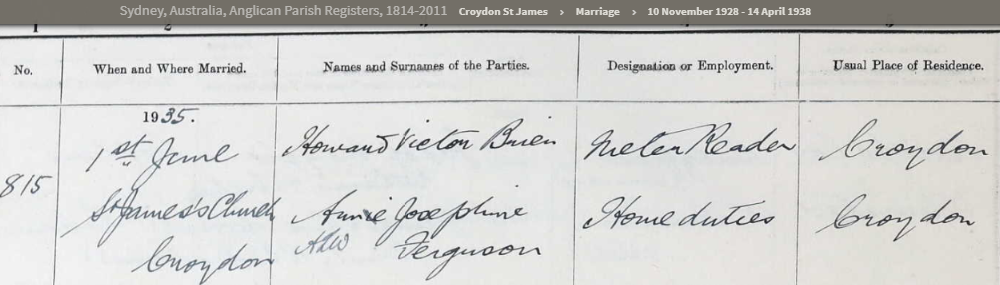 Sydney, Australia, Anglican Parish Registers, 1814-2011 Croydon St James > Marriage > 10 November 1928 - 14 April 1938
No. When and Where Married. Names and Surnames of the Parties. Designation or Employment. Usual Place of Residence.
1935.
1st June Howard Victor Brien Meter Reader Croydon
815
St James's Church Annie Josephine Home duties Croydon
Croydon Ferguson